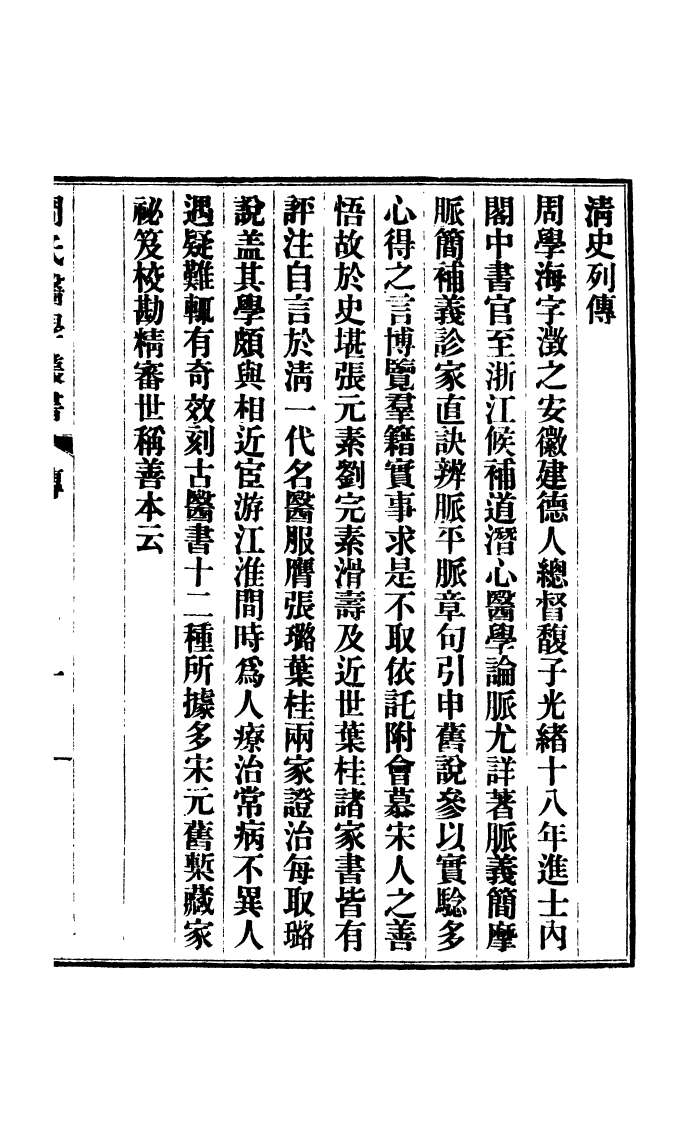 清史列傳
周學海字澂之安徽建德人總督馥子光緒十八年進士內
閣中書官至浙江候補道潛心醫學論脈尤詳著脈義簡摩
脈簡補義診家直訣辨脈平脈章句引申舊說參以實驗多
心得之言博覽羣籍實事求是不取依託附會慕宋人之善
悟故於史堪張元素劉完素滑壽及近世葉桂諸家書皆有
評注自言於清一代名醫服膺張璐葉桂兩家證治每取璐
說盖其學頗與相近宦游江淮間時爲人療治常病不異人
遇疑難輒有奇效刻古醫書十二種所據多宋元舊槧藏家
祕笈校勘精審世稱善本云
周氏醫學叢書 傳 一